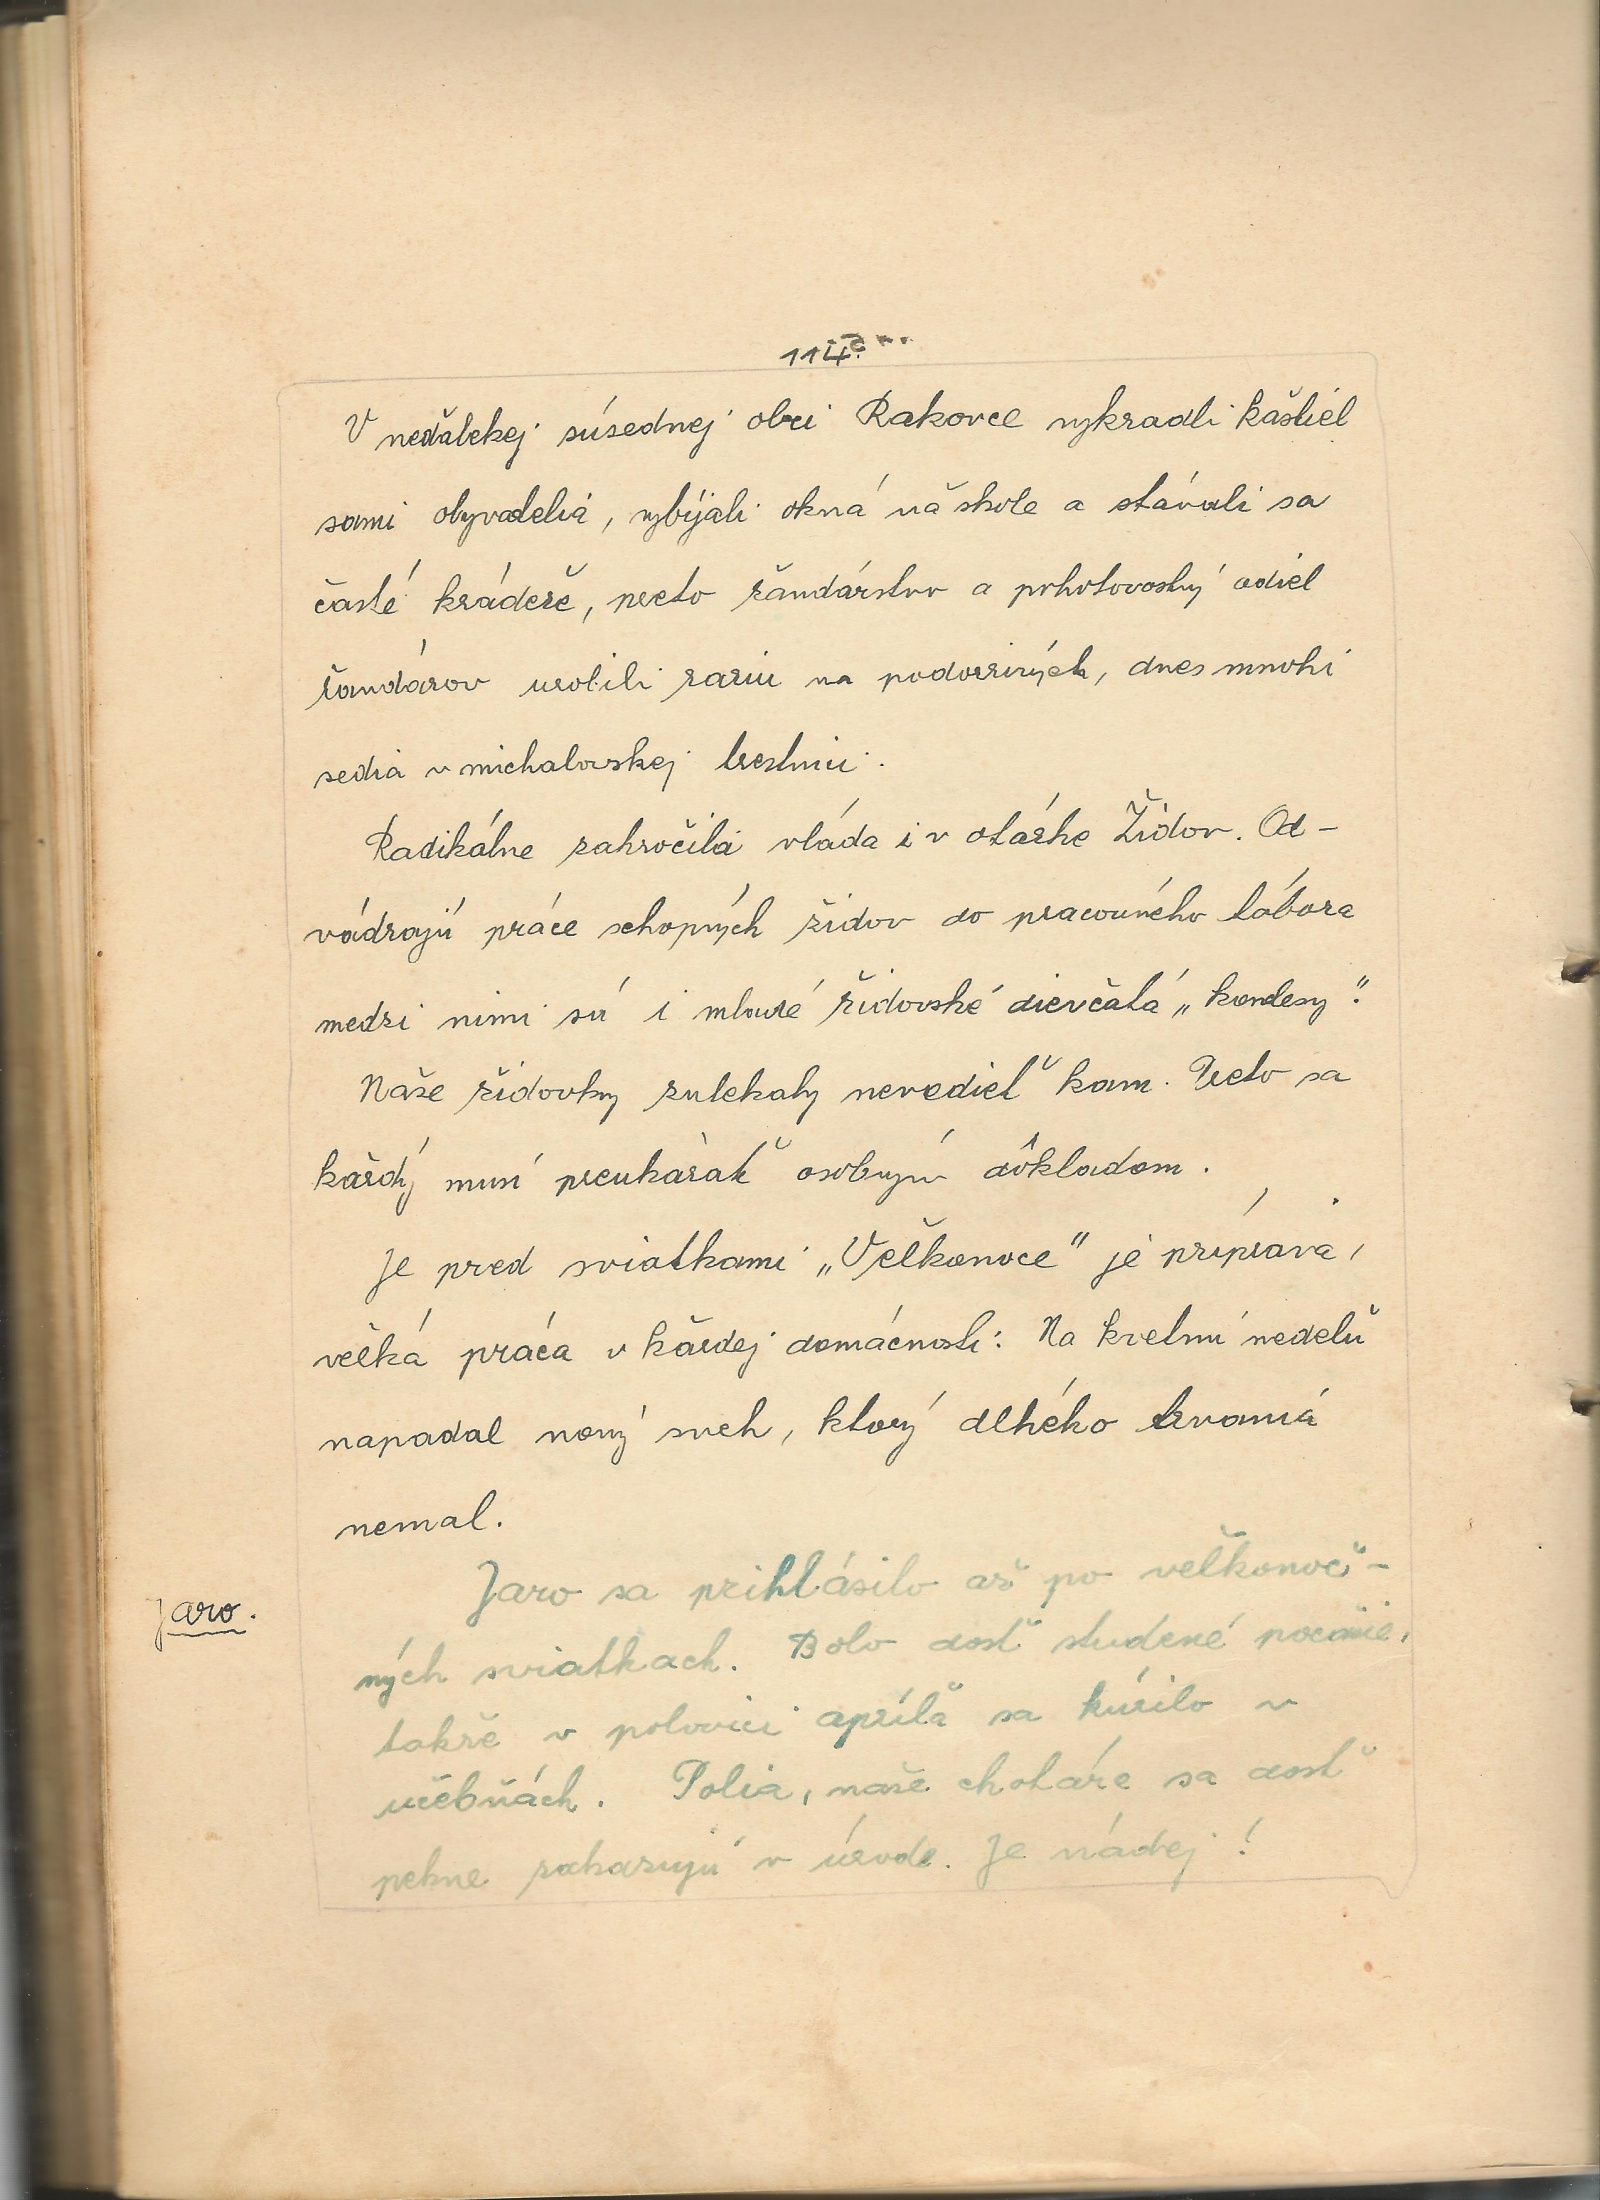 114.
V neďalekej súsednej obci Rakovce vykradli kaštiel
sami obyvadelia, vybíjali okná na škole a stávali sa
časté krádeže, preto žandárstvo a pohotovostný odiel
žandárov urobili raziu na podozrivých, dnes mnohí
sedia v michalovskej trestnici.
Radikálne zakročila vláda i v otázke Židov. Od-
vádzajú práce schopných židov do pracovného tábora
medzi nimi sú i mladé židovské dievčatá „
Naše židovky zutekaly nevedieť kam. Preto sa
každý musí preukázať osobným dôkladom.
Je pred sviatkami „Veľkonoce" je príprava,
veľká práca v každej domácnosti. Na kvetnú nedeľu
napadal nový sneh, ktorý dlhého trvania
nemal.
Jaro.
Jaro sa prihlásilo až po veľkonoč-
ných sviatkach. Bolo dosť studené počasie,
takže v polovici apríla sa kúrilo v
učebňách. Polia, naše chotáre sa dosť
pekne ukazujú v úrode. Je nádej!